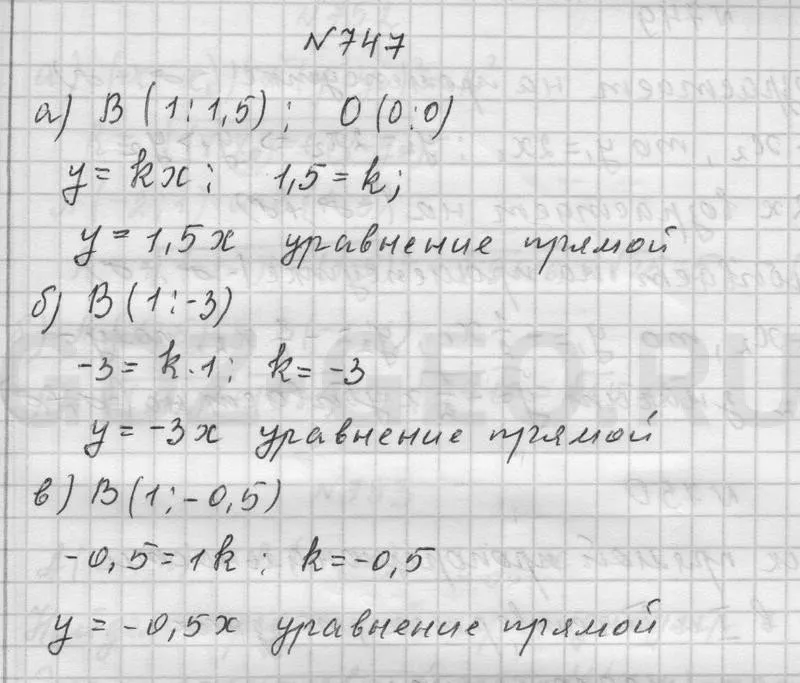 №747
а) В (1; 1,5); О (0; 0)
у = kх; 1,5 = k;
у = 1,5х уравнение прямой
б) В (1; -3)
-3 = k·1; k = -3
у = -3х уравнение прямой
в) В (1; -0,5)
-0,5 = 1k; k = -0,5
у = -0,5х уравнение прямой